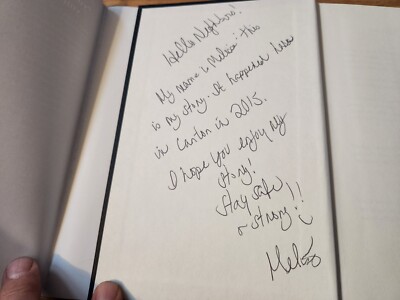 Hello Neighbors!
My name is Melissa: this
is my story. It happened here
in Canton in 2015.
I hope you enjoy my
story!
Stay safe
& strong!!